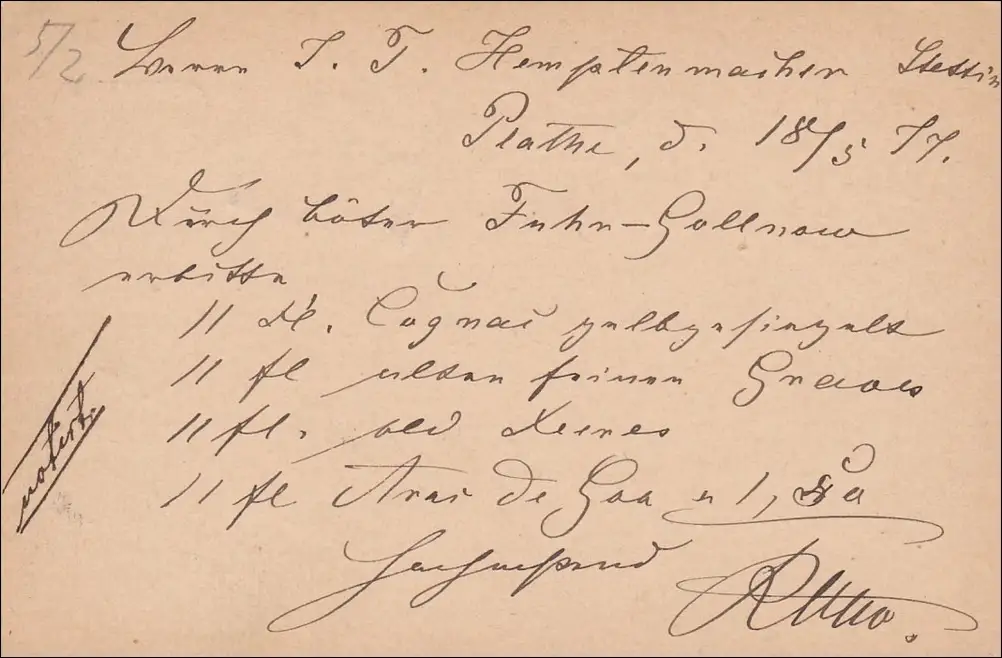 5/2
Herrn J. F. Hemptenmacher Stettin
Plathe, d. 18/5 77.
Durch Fuhr-Gollnow
erbitte
11 Fl. Cognac gelbgesiegelt
11 fl alten feinen Graves
11 fl. old Xeres
11 fl Arac de Goa a 1,
notirt.
Hochachtend